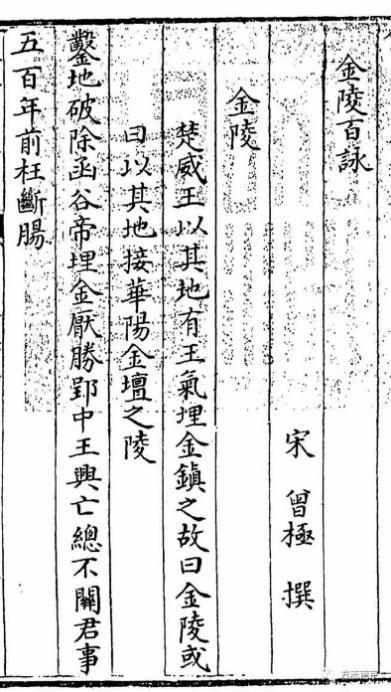 金陵百詠
宋 曾極 撰
金陵
楚威王以其地有王氣埋金鎮之故曰金陵或
曰以其地接華陽金壇之陵
鑿地破除函谷帝埋金厭勝郢中王興亡總不關君事
五百年前枉斷腸